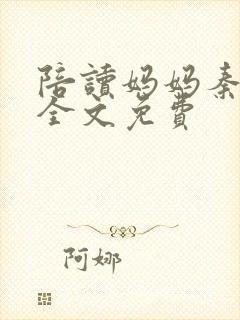 陪讀妈妈秦
全文免費
阿娜